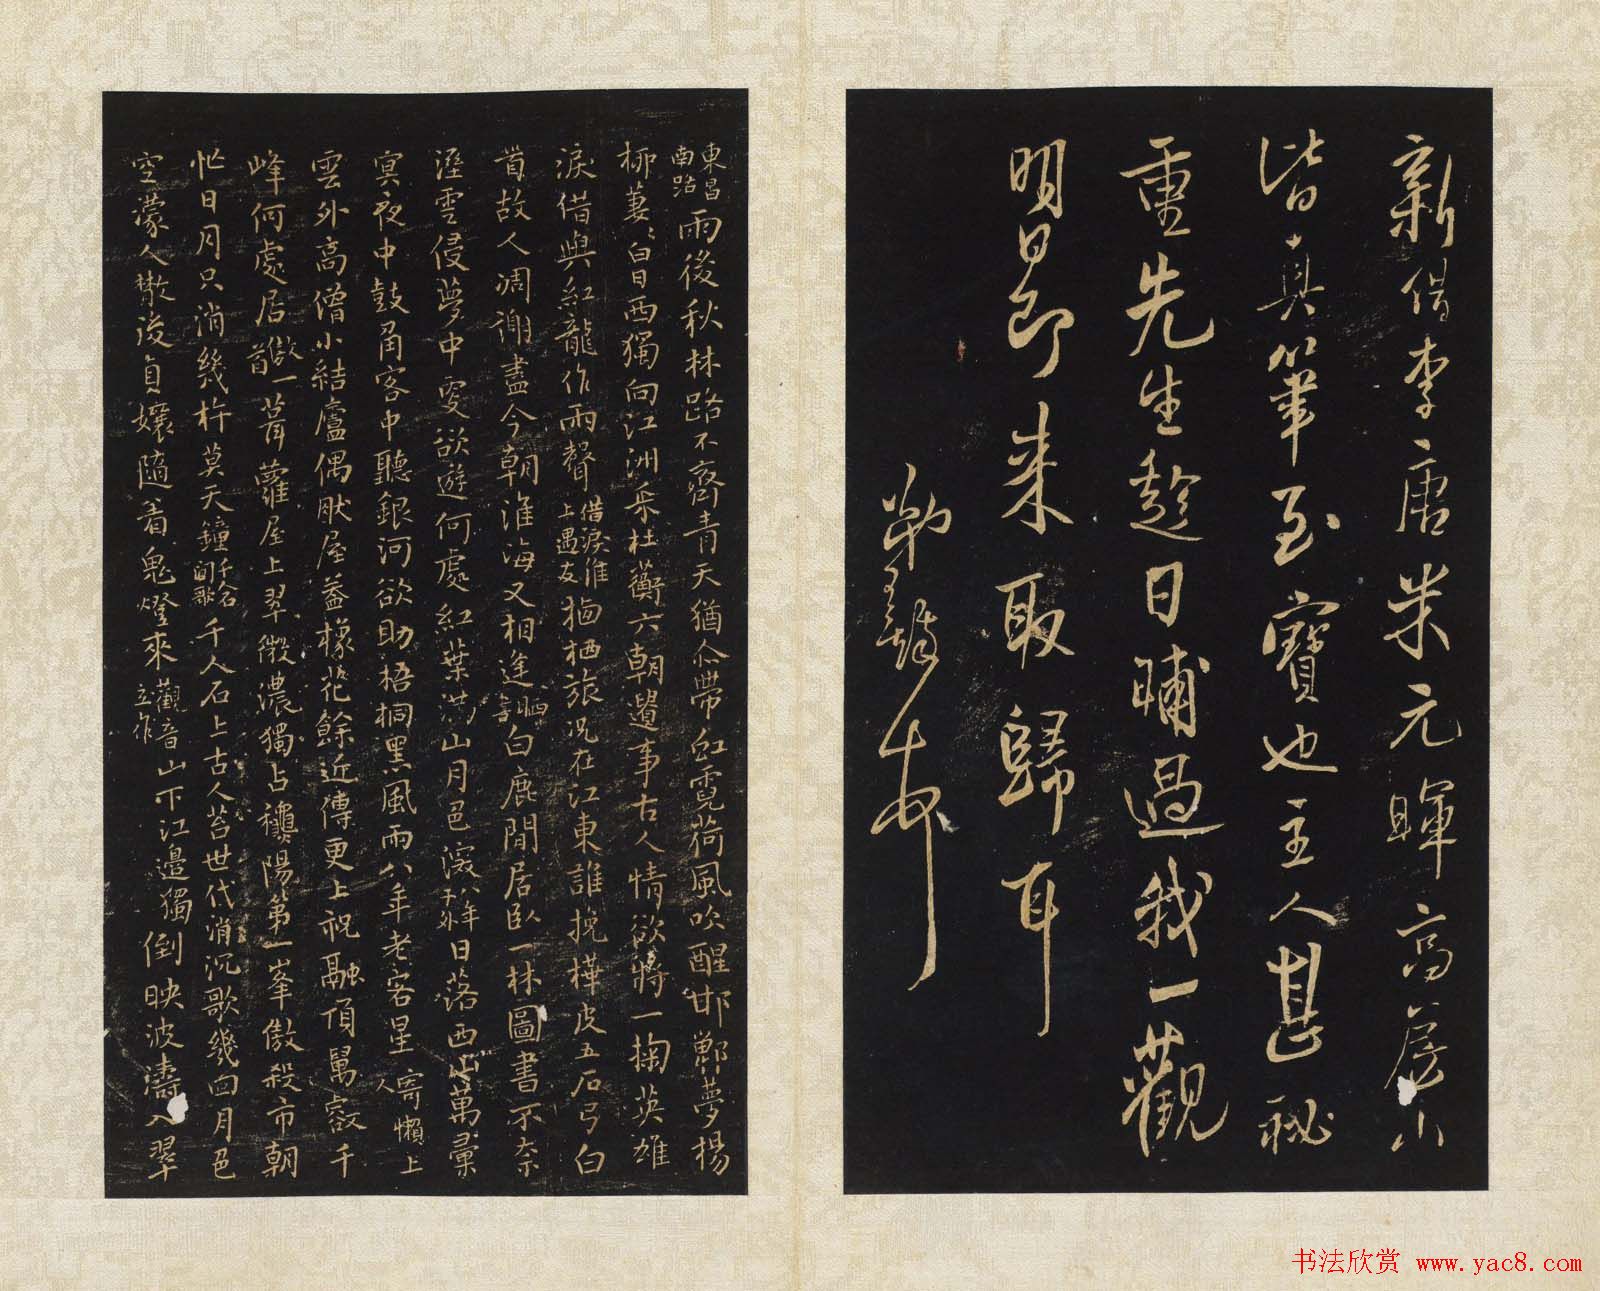 新借李唐米元暉高房山
皆真筆至寶也主人甚秘
重先生趁日晡過我一觀
明日即来取歸耳
弟
東昌
南路
雨後秋林路不齊青天猶尒帶虹霓荷風吹醒邯鄲夢楊
柳萋〻白日西獨向江洲采杜蘅六朝遺事古人情欲將一掬英雄
淚借與紅龍作雨聲
借淚淮
上遇友
栖旅况在江東誰挽樺皮五石弓白
首故人凋謝盡今朝淮海又相逢
白鹿閒居卧一林圖書不奈
溼雲侵夢中變欲遊何處紅葉滿山月色深
日落西山萬彙
冥夜中鼓角客中聽銀河欲助梧桐黑風雨八年老客星
寄懶上
人
雲外高僧小結廬偶厭屋蓋橡花餘近傳更上祝融頂萬
千
峰何處居
一茸蘿屋上翠微濃獨占
陽第一峯傲殺市朝
忙日月只消幾杵莫天鐘
千人石上古人苔世代消沉歌幾回月色
空濛人散後貞孃隨看鬼燈來
觀音山下江邊獨倒映波濤入翠
立作
书法欣赏 www.yac8.com